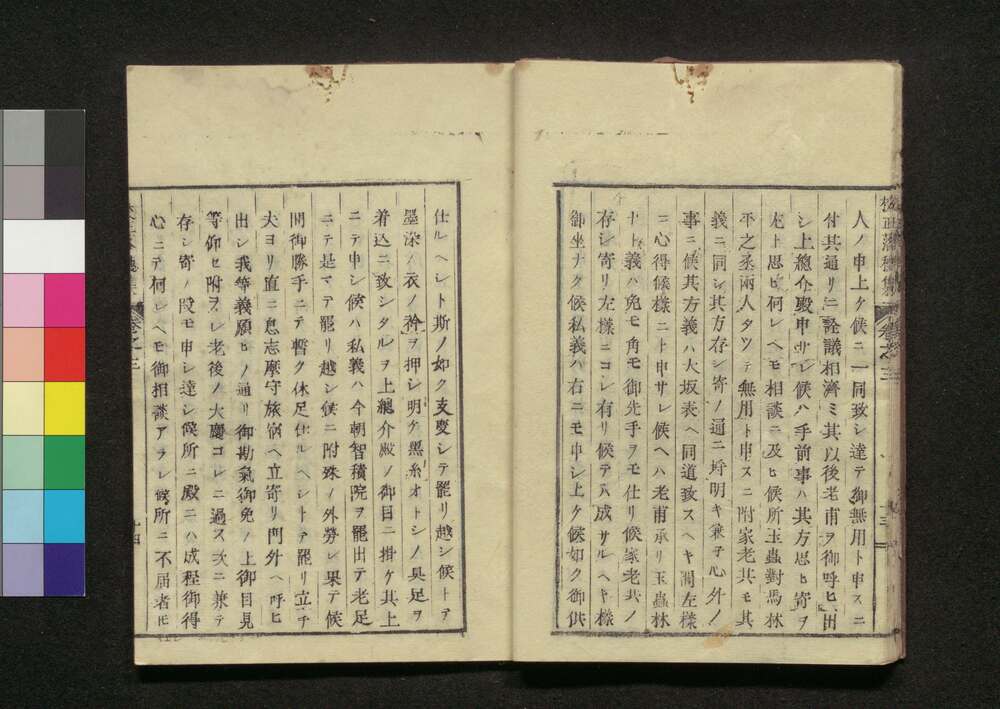 人ノ申上ケ候ニ一同致シ達テ御無用ト申スニ
付其通リニ詮議相濟ミ其以後老甫ヲ御呼ヒ出
シ上總介殿申サレ候ハ手前事ハ其方思ヒ寄ヲ
尤ト思ヒ何レヘモ相談ニ及ヒ候所玉蟲對馬林
平之丞兩人タツテ無用ト申スニ附家老共モ其
義ニ同シ其方存シ寄ノ通ニ埒明キ兼テ心外ノ
事ニ候其方義ハ大坂表ヘ同道致スヘキ間左樣
ニ心得候樣ニト申サレ候ヘハ老甫承リ玉蟲林
ナト義ハ兔モ角モ御先手ヲモ仕リ候家老共ノ
存シ寄リ左樣ニコレ有リ候テハ成サルヘキ樣
御坐ナク候私義ハ右ニモ申シ上ケ候如ク御供
仕ルヘシト斯ノ如ク支度シテ罷リ越シ候トテ
墨染ノ衣ノ衿ヲ押シ明ケ黒糸オトシノ具足ヲ
着込ニ致シタルヲ上總介殿ノ御目ニ掛ケ其上
ニテ申シ候ハ私義ハ今朝智積院ヲ罷出テ老足
ニテ是マテ罷リ越シ候ニ附殊ノ外勞レ果テ候
間御勝手ニテ暫ク休足仕ルヘシトテ罷リ立チ
夫ヨリ直ニ息志摩守旅宿ヘ立寄リ門外ヘ呼ヒ
出シ我等義願ヒノ通リ御勘氣御免ノ上御目見
等仰セ附ラレ老後ノ大慶コレニ過ス次ニ兼テ
存シ寄ノ段モ申シ達シ候所ニ殿ニハ成程御得
心ニテ何レヘモ御相談アラレ候所ニ不届者モ